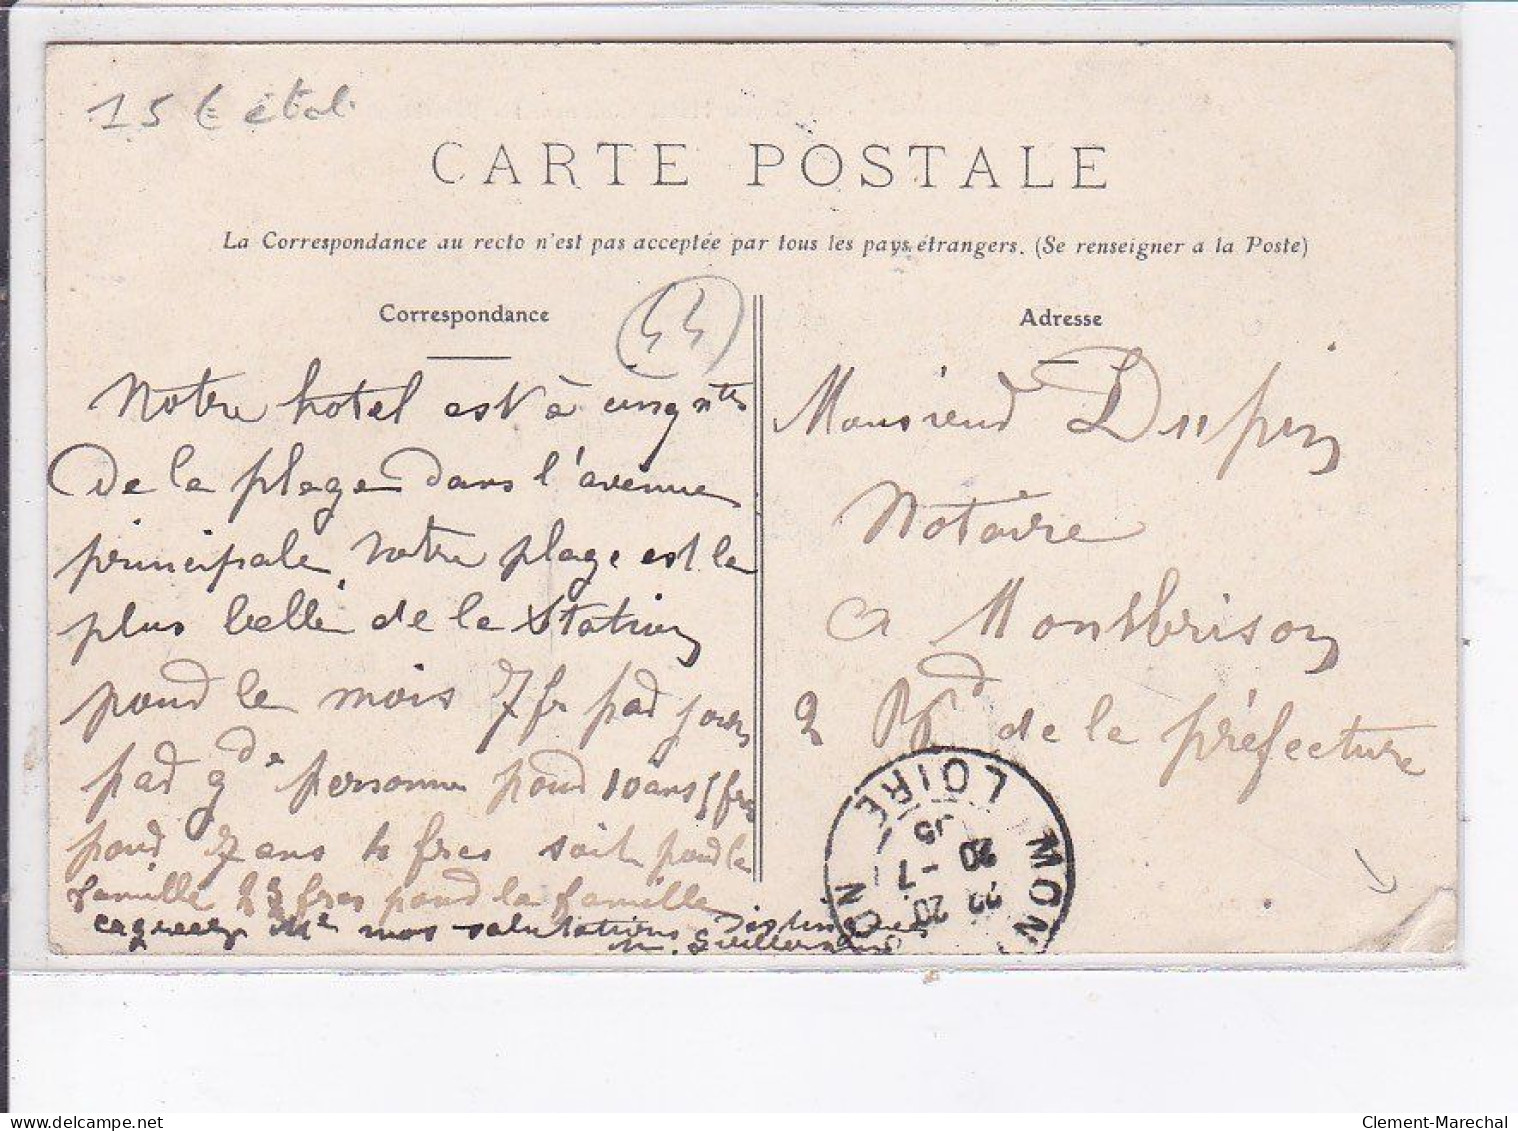 15 € état
CARTE POSTALE
La Correspondance au recto n'est pas acceptée par tous les pays étrangers. (Se renseigner a la Poste)
Correspondance
44
Notre hotel est à cinq mtes
de la plage dans l'avenue
principale, notre plage est la
plus belle de la Station
pour le mois 7 fr par jour
par gde personne pour 10 ans 5 frs
pour 7 ans 4 frcs soit pour la
famille 23 frcs pour la famille
agreez Mr mes salutations distinguées
Adresse
Monsieur Dupin
Notaire
a Montbrison
2 Bd de la préfecture
MON ON
LOIRE
20 -7
05
Clement-Marechal